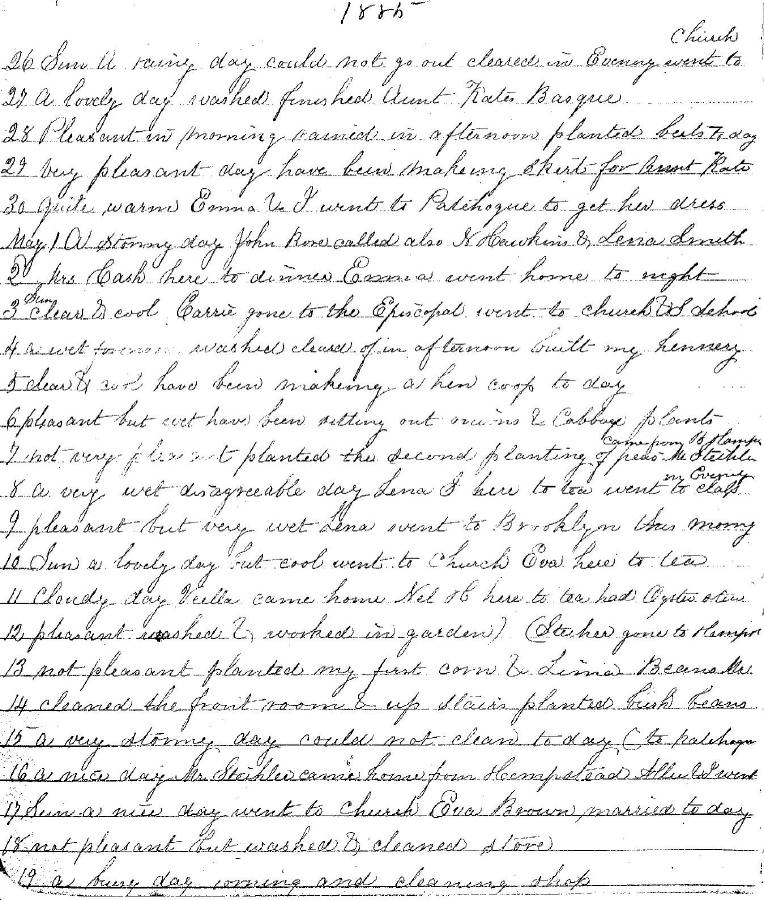 1885
Church
26 Sun A rainy day could not go out cleared in Evening went to
27 A lovely day washed finished Aunt Kates Basque
28 Pleasant in morning rained in afternoon planted beets to day
29 Very pleasant day have been makeing skirt for Aunt Kate
30 Quite warm Emma & I went to Patchogue to get her dress
May 1 A stormy day John Rose called also N Hawkins & Lena Smith
2 Mrs Cash here to dinner Emma went home to night
3 Sun clear & cool Carrie gone to the Episcopal went to church & S School
4 a wet forenoon washed cleared of in afternoon built my hennery
5 clear & cool have been makeing a hen coop to day
6 pleasant but wet have been setting out & Cabbage plants
came from
7 not very pleasant planted the second planting of peas Mr Steihle
in Evening
8 a very wet disagreeable day Lena S here to tea went to class
9 pleasant but very wet Lena went to Brooklyn this morng
10 Sun a lovely day but cool went to Church Eva here to tea
11 Cloudy day came home Nel H here to tea had Oyster stew
12 pleasant washed & worked in garden) ( gone to
13 not pleasant planted my first corn & Lima Beans Mr
14 cleaned the front room & up stairs planted bush beans
15 a very stormy day could not clean to day (to Patchogue
16 a nice day Mr Steihle came home from Hempstead & I went
17 Sun a nice day went to Church Eva Brown married to day
18 not pleasant but washed & cleaned store
19 a busy day ironing and cleaning shop